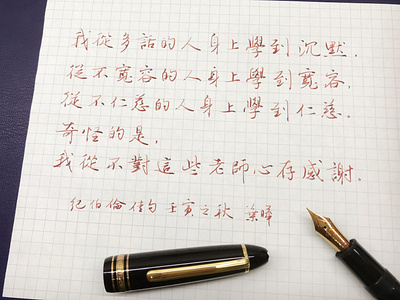 我從多話的人身上學到沉默.
從不寬容的人身上學到寬容.
從不仁慈的人身上學到仁慈.
奇怪的是,
我從不對這些老師心存感謝.
紀伯倫佳句 壬寅之秋 葉曄